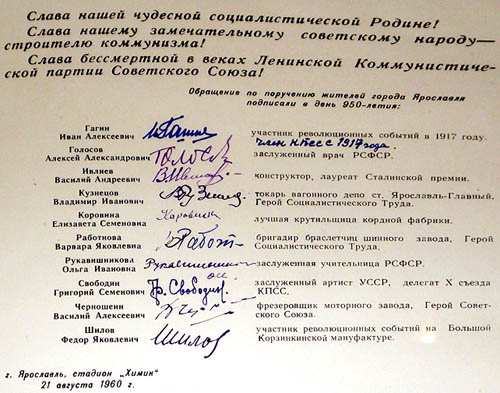 Слава нашей чудесной социалистической Родине!
Слава нашему замечательному советскому народу—
строителю коммунизма!
Слава бессмертной в веках Ленинской Коммунистиче-
ской партии Советского Союза!
Обращение по поручению жителей города Ярославля
подписали в день 950-летия:
Гагин
Иван Алексеевич
участник революционных событий в 1917 году.
член КПСС с 1917 года.
Голосов
Алексей Александрович
Голосов
заслуженный врач РСФСР.
Ивлиев
Василий Андреевич
конструктор, лауреат Сталинской премии.
Кузнецов
Владимир Иванович
токарь вагонного депо ст. Ярославль-Главный,
Герой Социалистического Труда.
Коровина
Елизавета Семеновна
Коровина
лучшая крутильщица кордной фабрики.
Работнова
Варвара Яковлевна
Работ
бригадир браслетчиц шинного завода, Герой
Социалистического Труда.
Рукавишникова
Ольга Ивановна
Рукавишникова
заслуженная учительница РСФСР.
Свободин
Григорий Семенович
Гр. Свободин
заслуженный артист УССР, делегат X съезда
КПСС.
Черношеин
Василий Алексеевич
фрезеровщик моторного завода, Герой Совет-
ского Союза.
Шилов
Федор Яковлевич
Шилов
участник революционных событий на Большой
Корзинкинской мануфактуре.
г. Ярославль, стадион „Химик"
21 августа 1960 г.